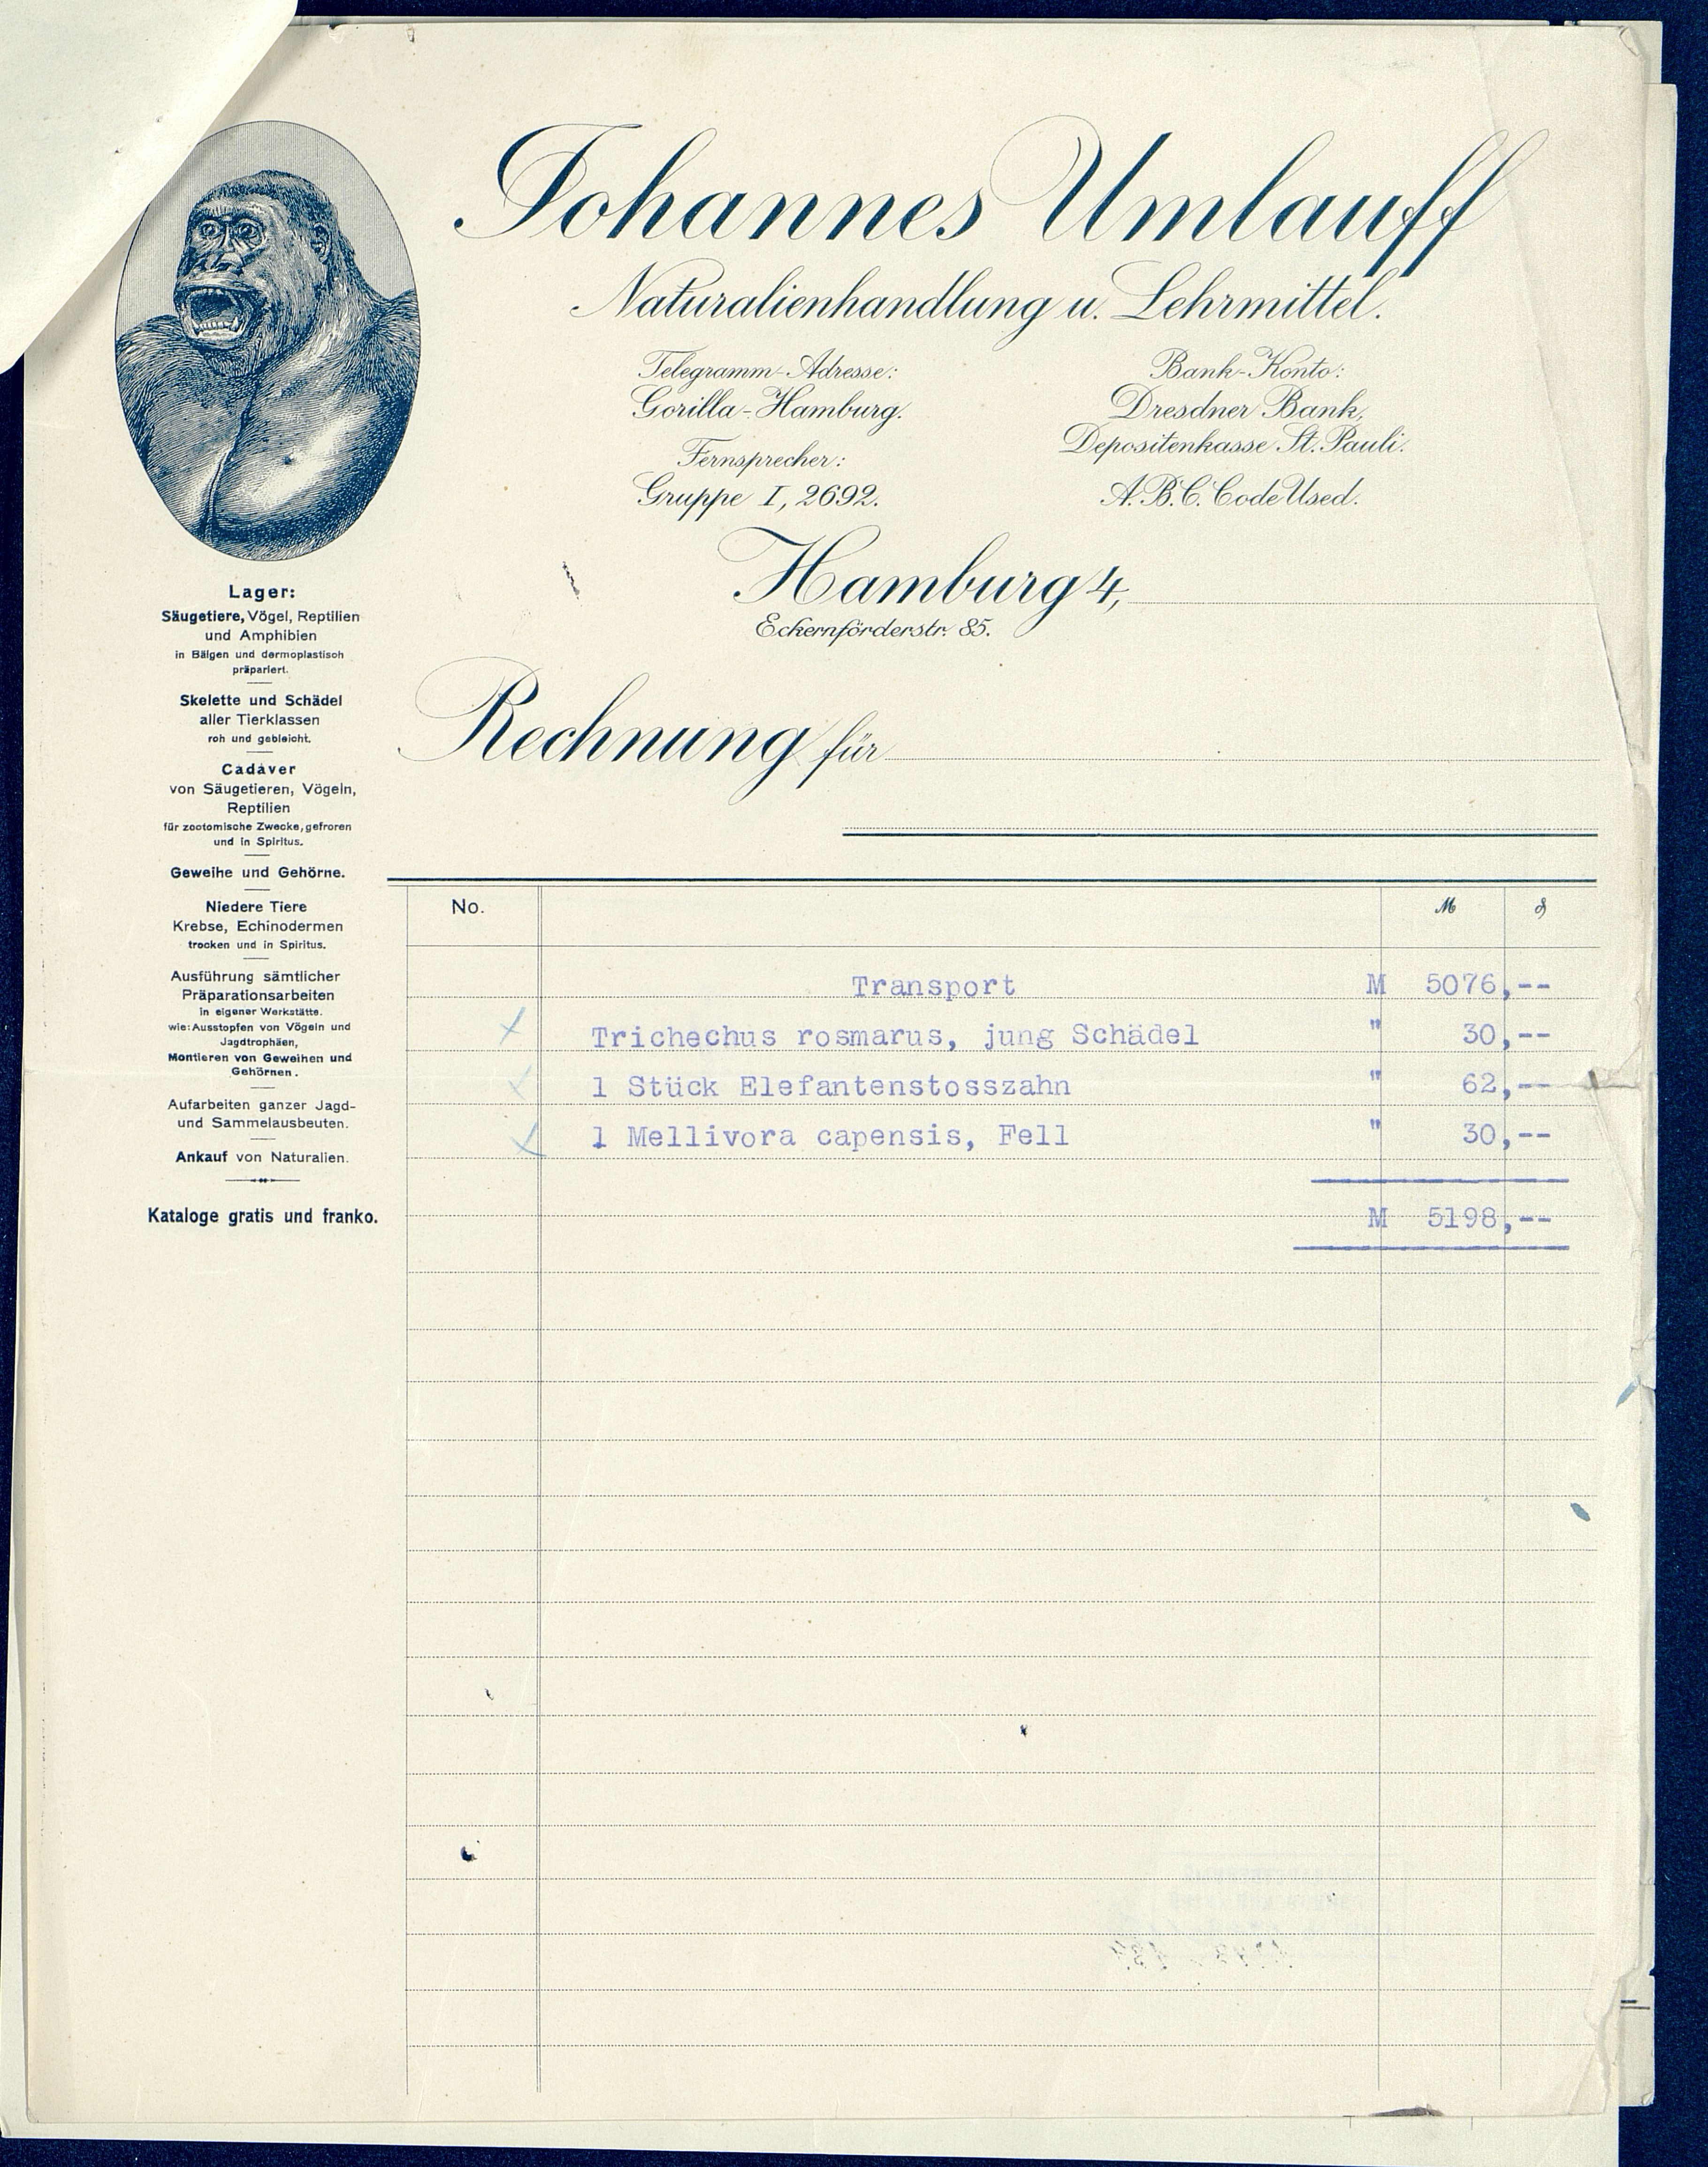 Johannes Umlauff
Naturalienhandlung u. Lehrmittel.
Telegramm-Adresse:
Gorilla-Hamburg.
Fernsprecher:
Gruppe I, 2692.
Bank-Konto:
Dresdner Bank,
Depositenkasse St. Pauli.
A.B.C. Code Used.
Hamburg 4,
Eckernförderstr. 85.
Rechnung für
Lager:
Säugetiere, Vögel, Reptilien
und Amphibien
in Bälgen und dermoplastisch
präpariert.
Skelette und Schädel
aller Tierklassen
roh und gebleicht.
Cadaver
von Säugetieren, Vögeln,
Reptilien
für zootomische Zwecke, gefroren
und in Spiritus.
Geweihe und Gehörne.
Niedere Tiere
Krebse, Echinodermen
trocken und in Spiritus.
Ausführung sämtlicher
Präparationsarbeiten
in eigener Werkstätte.
wie: Ausstopfen von Vögeln und
Jagdtrophäen,
Montieren von Geweihen und
Gehörnen.
Aufarbeiten ganzer Jagd-
und Sammelausbeuten.
Ankauf von Naturalien.
Kataloge gratis und franko.
No. M ₰
Transport M 5076,--
Trichechus rosmarus, jung Schädel " 30,--
1 Stück Elefantenstosszahn " 62,--
1 Mellivora capensis, Fell " 30,--
M 5198,--